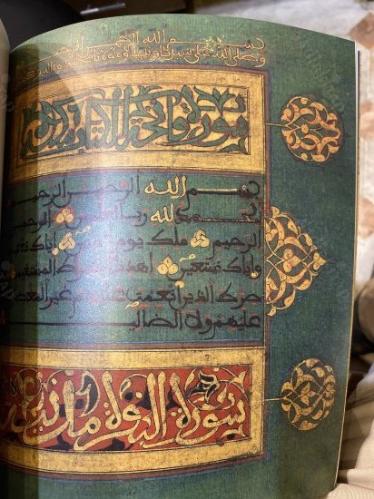 بسم الله الرحمن الرحيم
وصلى الله على سيدنا
سورة فاتحة الكتاب
بسم الله الرحمن الرحيم
الحمد لله رب العلمين الرحمن
الرحيم ملك يوم الدين إياك نعبد
وإياك نستعين اهدنا الصراط المستقيم
صرط الذين أنعمت عليهم غير المغضوب
عليهم ولا الضالين
سورة البقرة مائتان